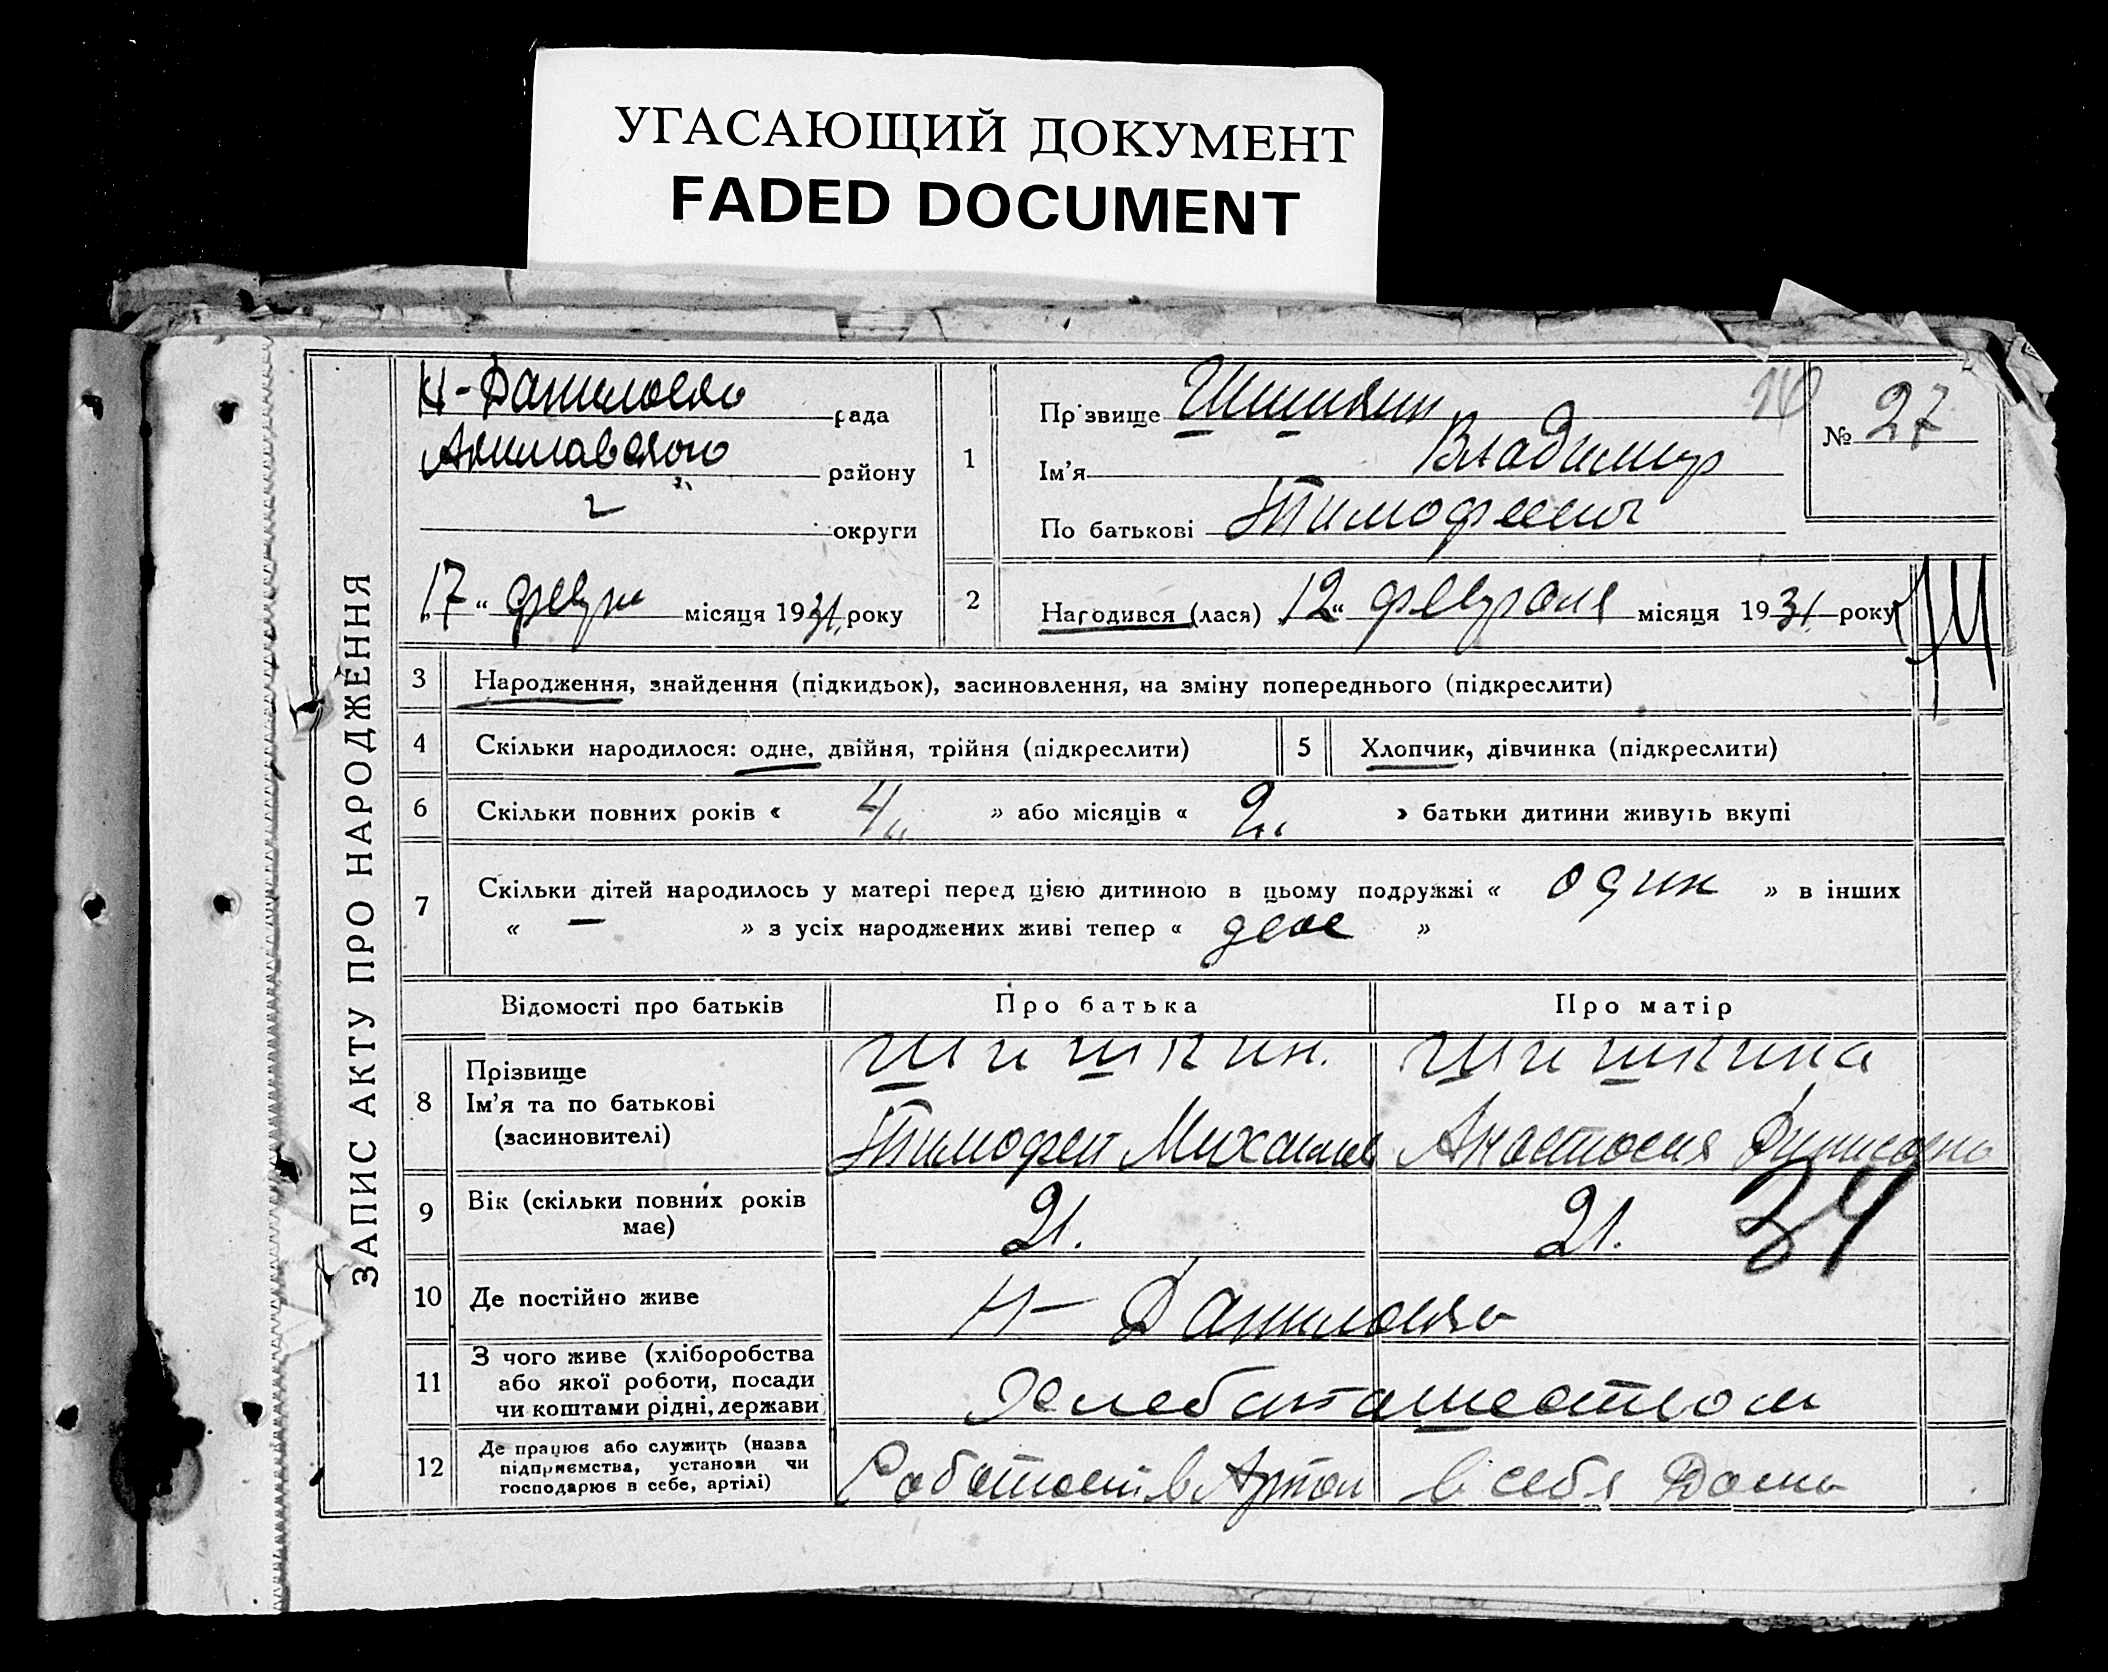 УГАСАЮЩИЙ ДОКУМЕНТ
FADED DOCUMENT
ЗАПИС АКТУ ПРО НАРОДЖЕННЯ
Н-Даниловка рада
району
округи
„17“ февр місяця 1931. року
1
Прізвище Шишкин
Ім'я Владимир
По батькові Тимофеевич
№ 27
2
Народився (лася) „12“ февраля місяця 1931. року
3 Народження, знайдення (підкидьок), засиновлення, на зміну попереднього (підкреслити)
4 Скільки народилося: одне, двійня, трійня (підкреслити)
5 Хлопчик, дівчинка (підкреслити)
6 Скільки повних років « 4 » або місяців « 2 » батьки дитини живуть вкупі
7 Скільки дітей народилось у матері перед цією дитиною в цьому подружжі « один » в інших
« — » з усіх народжених живі тепер « двое »
Відомості про батьків Про батька Про матір
8 Прізвище
Ім'я та по батькові
(засиновителі)
Шишкин.
Тимофей Михайлов
Шишкина
Анастасия
9 Вік (скільки повних років
має)
21. 21.
34
10 Де постійно живе Н-Даниловка
11 З чого живе (хліборобства
або якої роботи, посади
чи коштами рідні, держави
Хлебопашеством
12 Де працює або служить (назва
підприємства, установи чи
господарює в себе, артілі)
Работает в Артел
в себя Дома